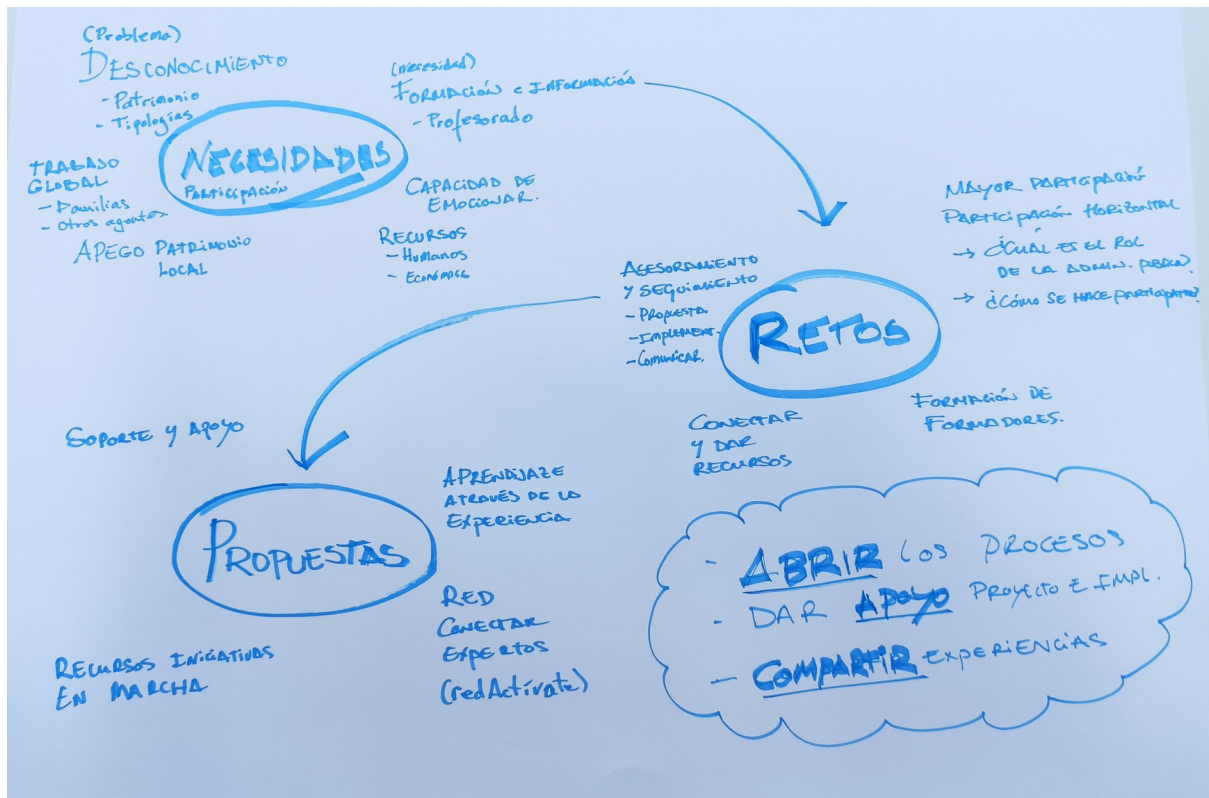 (Problema)
DESCONOCIMIENTO
- Patrimonio
- Tipologías
(necesidad)
FORMACIÓN e INFORMACIÓN
- Profesorado
NECESIDADES
PARTICIPACIÓN
TRABAJO
GLOBAL
- Familias
- otros agentes
APEGO PATRIMONIO
LOCAL
CAPACIDAD DE
EMOCIONAR.
RECURSOS
- Humanos
- Económic
MAYOR PARTICIPACIÓN
PARTICIPACIÓN HORIZONTAL
→ ¿CUÁL ES EL ROL
DE LA ADMIN. PÚBLICA?
→ ¿CÓMO SE HACE PARTICIPATE?
ASESORAMIENTO
Y SEGUIMIENTO
- PROPUESTA
- IMPLEMENT.
- COMUNICAR.
RETOS
CONECTAR
Y DAR
RECURSOS
FORMACIÓN DE
FORMADORES.
SOPORTE Y APOYO
PROPUESTAS
APRENDIJAZE
ATRAVÉS DE LA
EXPERIENCIA
RED
CONECTAR
EXPERTOS
(redActívate)
RECURSOS INICIATIVAS
EN MARCHA
- ABRIR LOS PROCESOS
- DAR APOYO PROYECTO E IMPL.
- COMPARTIR EXPERIENCIAS